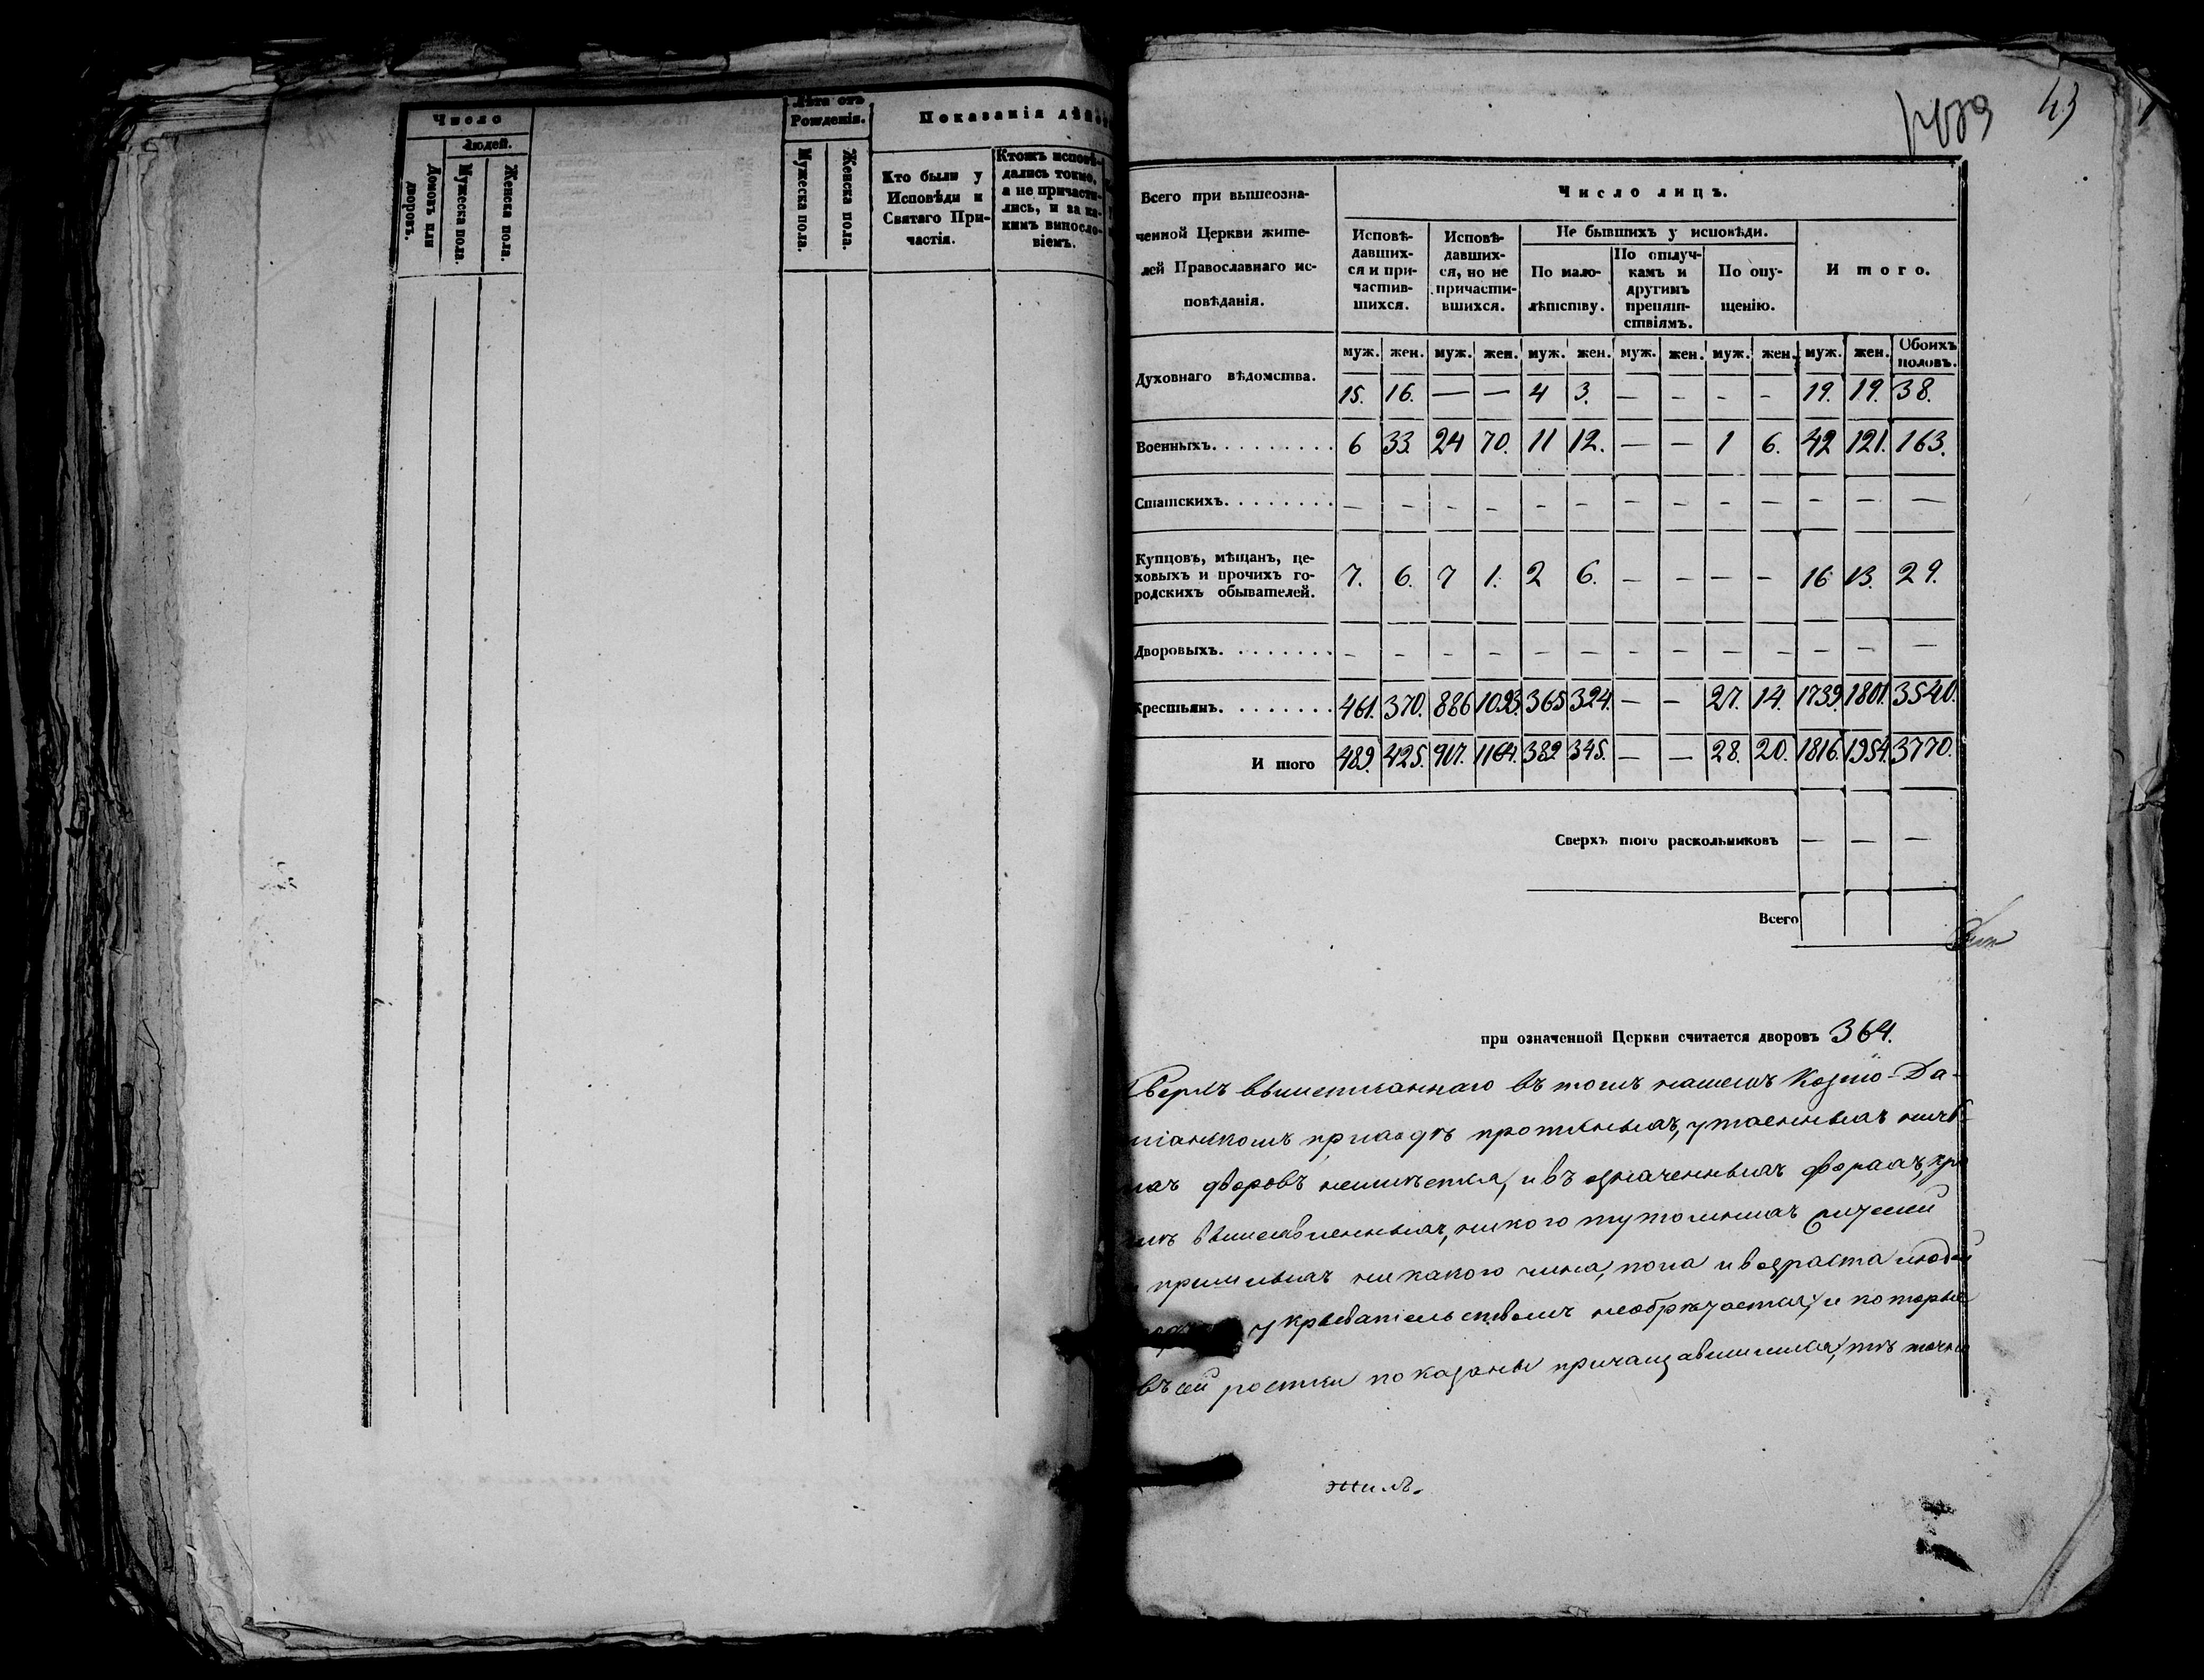 Число
Людей.
Домовъ или дворовъ.
Мужеска пола.
Женска пола.
Лѣта отъ Рожденія.
Мужеска пола.
Женска пола.
Показанія дѣйс
Кто были у
Исповѣди и
Святаго При-
частія.
Ктожъ исповѣ-
дались токмо,
а не причасти-
лись, и за ка-
кимъ виносло-
віемъ.
43
Всего при вышеозна-
ченной Церкви жите-
лей Православнаго ис-
повѣданія.
Число лицъ.
Исповѣ-
давших-
ся и при-
частив-
шихся.
Исповѣ-
давших-
ся, но не
причасти-
вшихся.
Не бывшихъ у исповѣди.
По мало-
лѣтству.
По отлуч-
камъ и
другимъ
препят-
ствіямъ.
По опу-
щенію.
Итого.
муж. жен. муж. жен. муж. жен. муж. жен. муж. жен. муж. жен. Обоихъ половъ.
Духовнаго вѣдомства. 15. 16. — — 4 3. — — — — 19. 19. 38.
Военныхъ. . . . . . . . . 6 33. 24 70. 11 12. — — 1 6. 42 121. 163.
Статскихъ. . . . . . . . — — — — — — — — — — — — —
Купцовъ, мѣщанъ, це-
ховыхъ и прочихъ го-
родскихъ обывателей. 7. 6. 7 1. 2 6. — — — — 16 13. 29.
Дворовыхъ. . . . . . . . — — — — — — — — — — — — —
Крестьянъ. . . . . . . . 461. 370. 886 1093. 365 324. — — 27. 14. 1739. 1801. 3540.
Итого 489. 425. 917. 1164. 382 345. — — 28. 20. 1816. 1954. 3770.
Сверхъ того раскольниковъ — — —
Всего
при означенной Церкви считается дворовъ 364.
Сверхъ вышеписаннаго въ томъ нашемъ Козмо-Да-
міанскомъ приходѣ прописныхъ, утаенныхъ
дворовъ неимѣется, и въ означенныхъ дворахъ, кро
вышеявленныхъ, никого тутошнихъ
пришлыхъ никакого чина, пола и возраста людей
укрывательствомъ необрѣтается; и которые
въ сей росписи показаны причащавшимися, тѣ точно